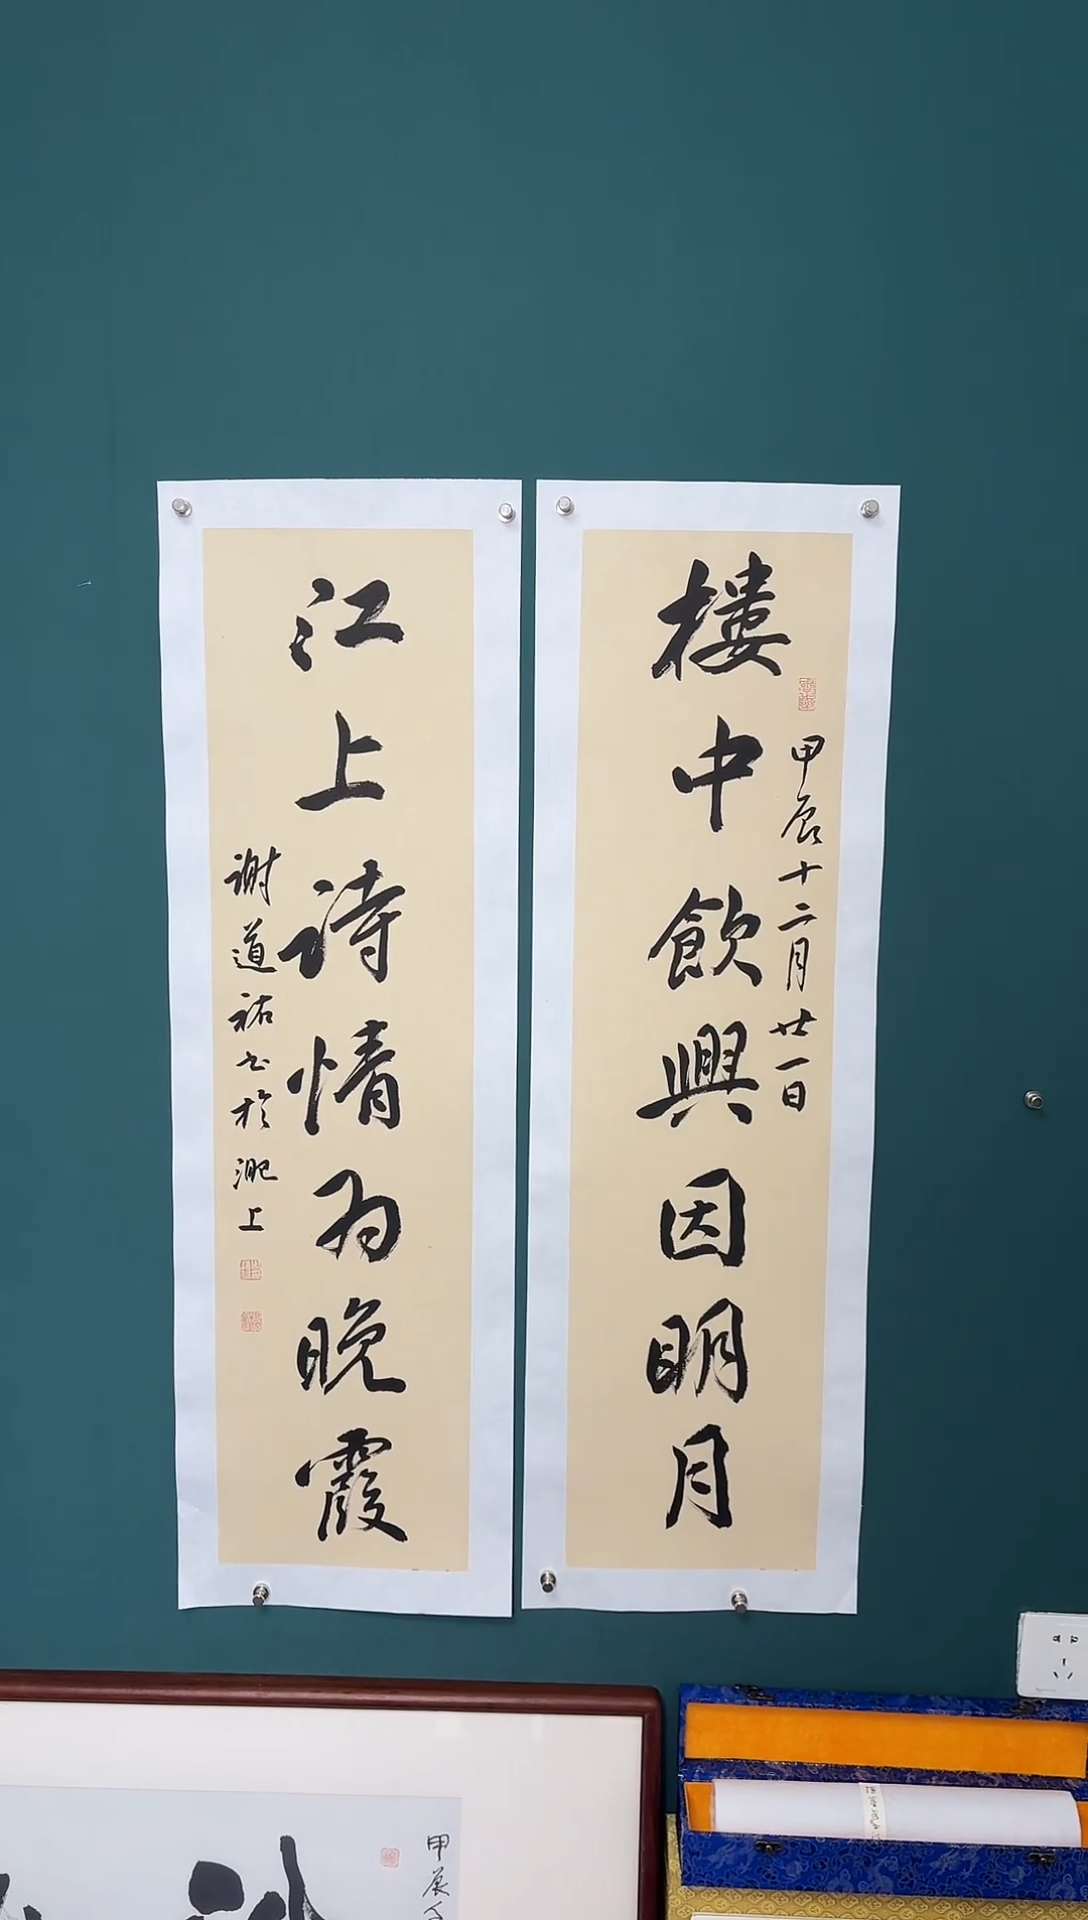 楼中飲興因明月
甲辰十二月廿一日
江上诗情为晚霞
谢道祐书於淝上
甲辰